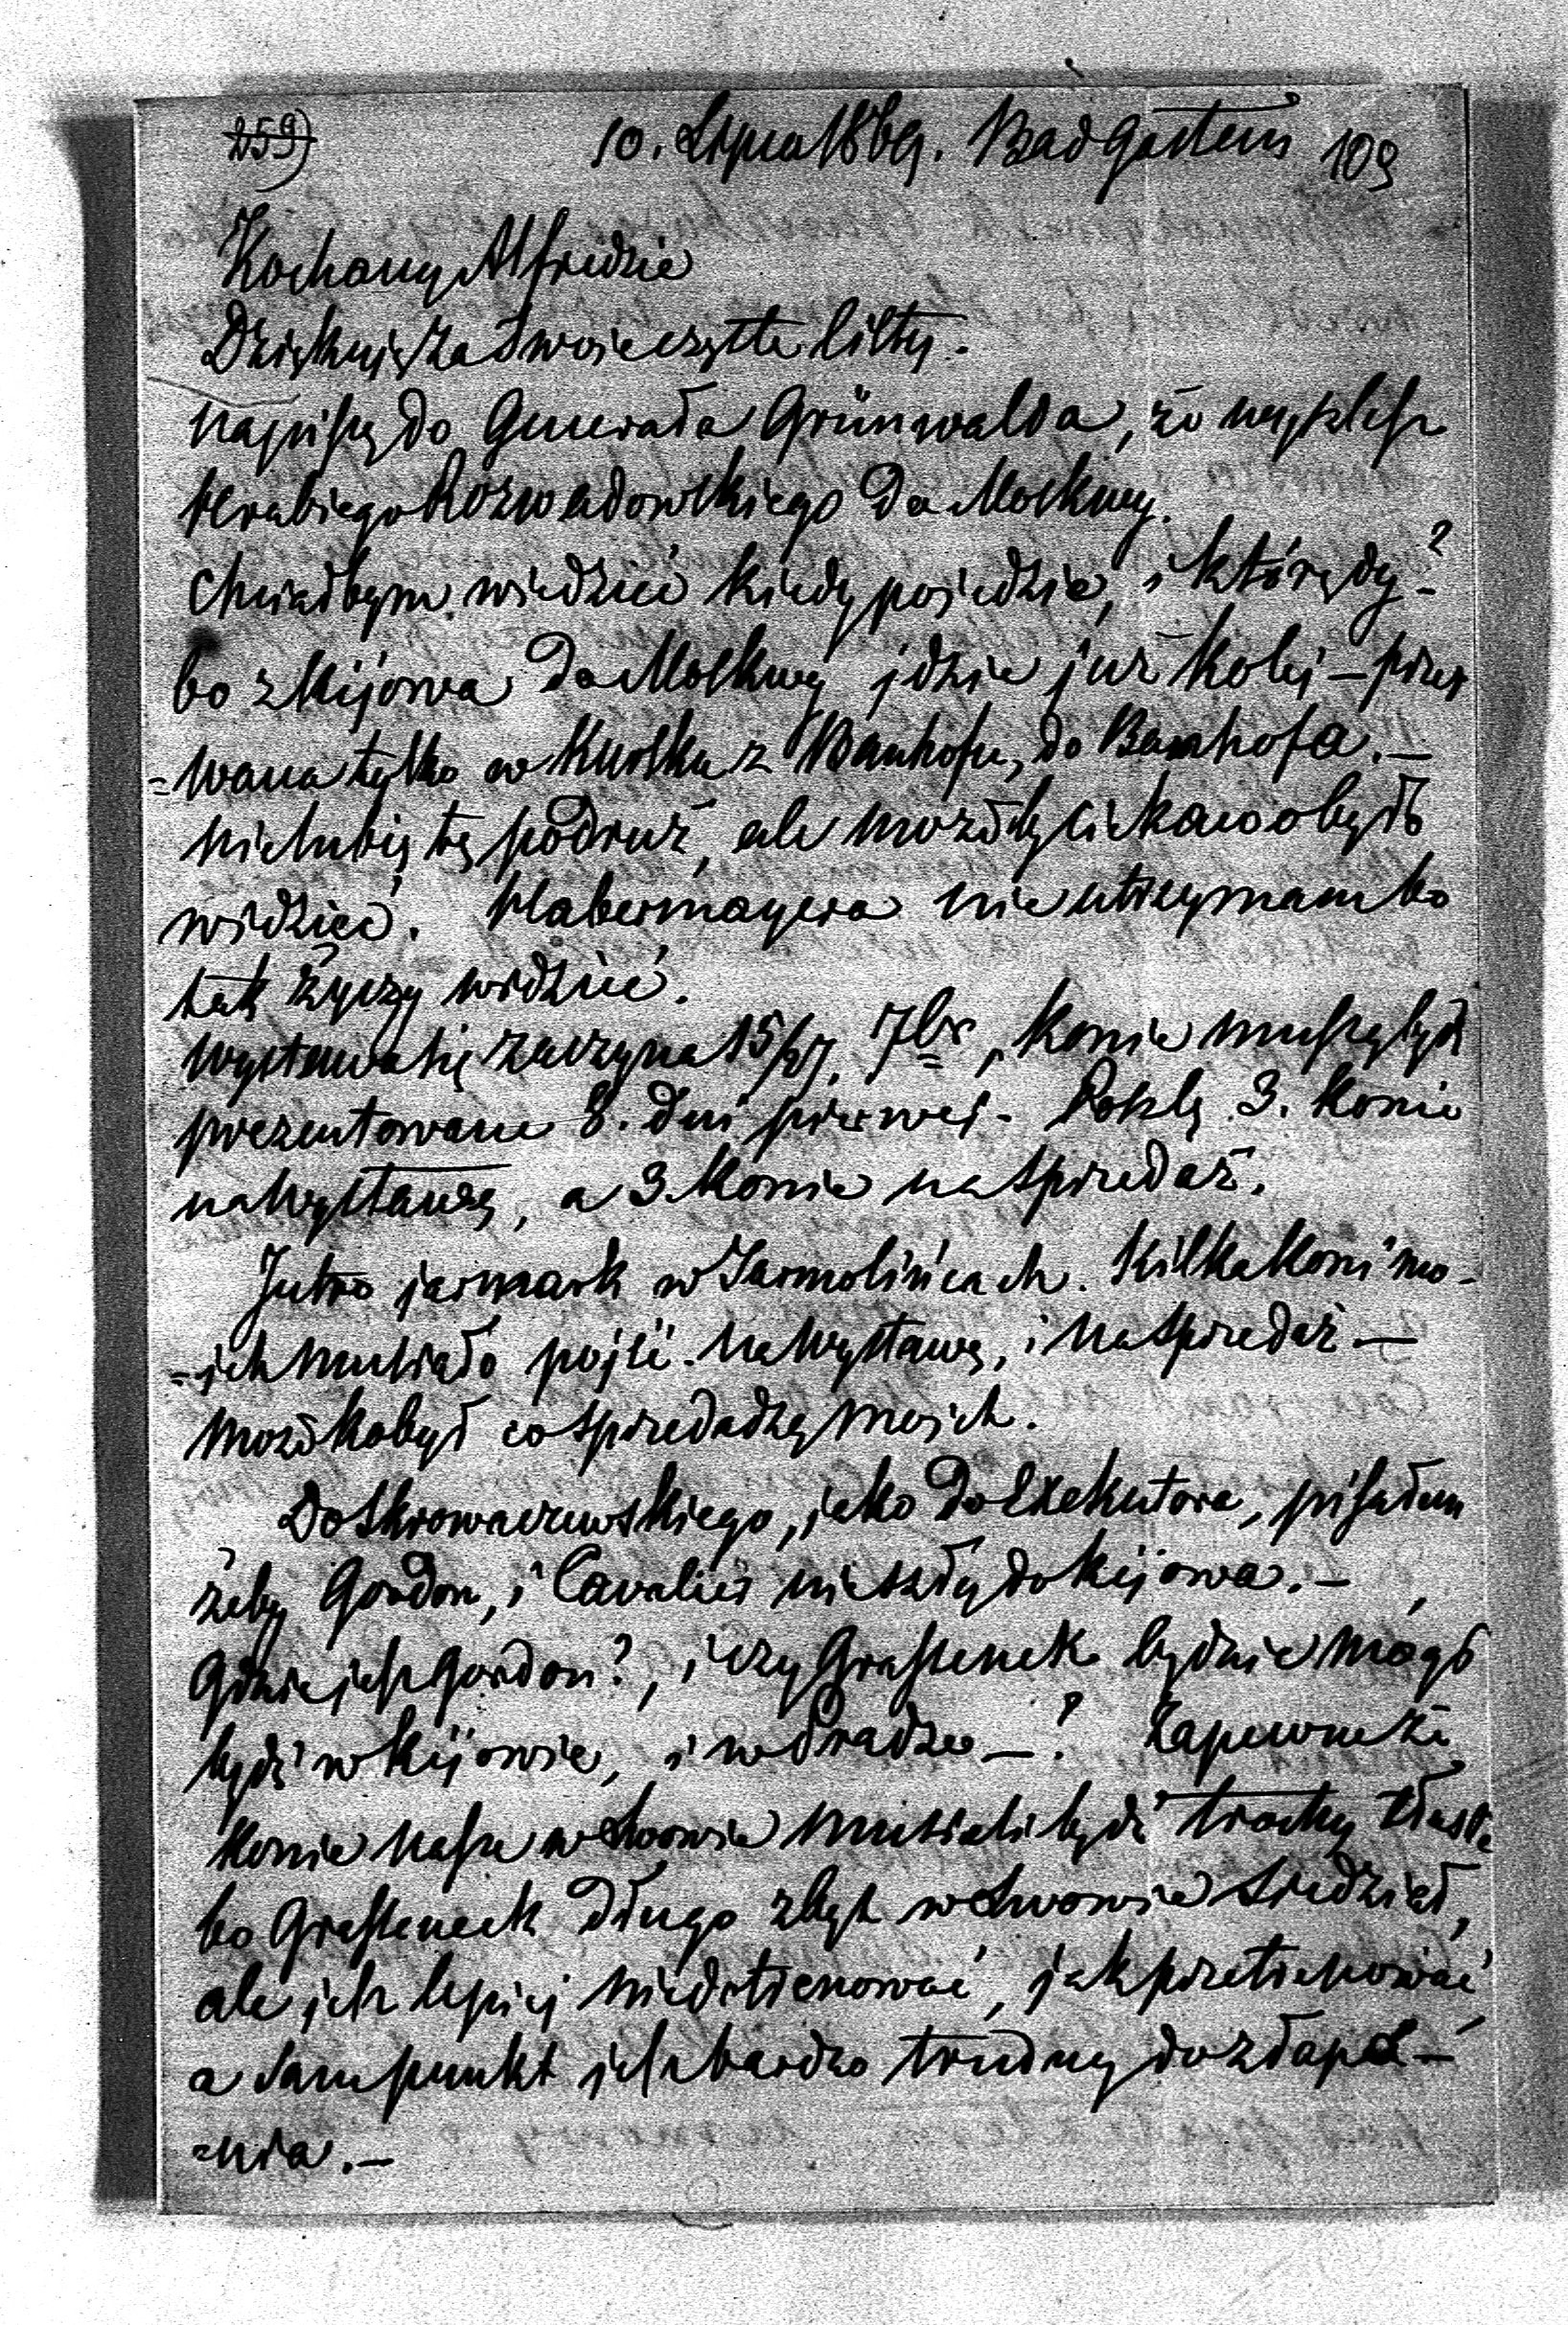 259) 10. Lipca 1869. Bad Gastein 109
Kochany Alfredzie
Dziękuję za Twoie czyste listy.
napiszę do Generała Grünwalda, że wyszlesz
Hrabiego Rozwadowskiego do Moskwy.
Chciałbym wiedzieć kiedy pojedzie, i którędy?
bo z Kijowa do Moskwy idzie już kolej – przer
=wana tylko w Kursku z Banhofu, do Banhofa. –
nie lubię tę podruż, ale możeby ciekawo było
widzieć. Habermayera nie utrzymam bo
tak życzy widzieć.
Wystawa się zaczyna 15/27. 7br, konie muszą bydź
prezentowane 8. dni pierwej. Poszlę 3. konie
na Wystawę, a 3. konie na sprzedaż.
Jutro jarmark w Jarmolińcach. Kilka koni mo-
=ich musiało pojść na Wystawę, i na sprzedaż –
może kobył co sprzedadzą moich.
Do Skrowaczewskiego, jako do Exekutora, pisałem
żeby Gordon, i Cavalier nie szły do Kijowa. –
Gdzie jest Gordon?, i czy Grafeneck będzie mógł
bydź w Kijowie, i w Pradze –? Zapewne że
konie nasze w Lwowie musiali bydź trochę tłuste
bo Grafeneck długo zbyt w Lwowie siedział,
ale ich lepiej niedotrenować, jak pretrenować
a sam punkt jest bardzo trudny do złapa-
=nia. –